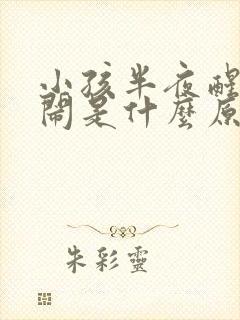 小孩半夜醒
鬧是什麼原
朱彩靈